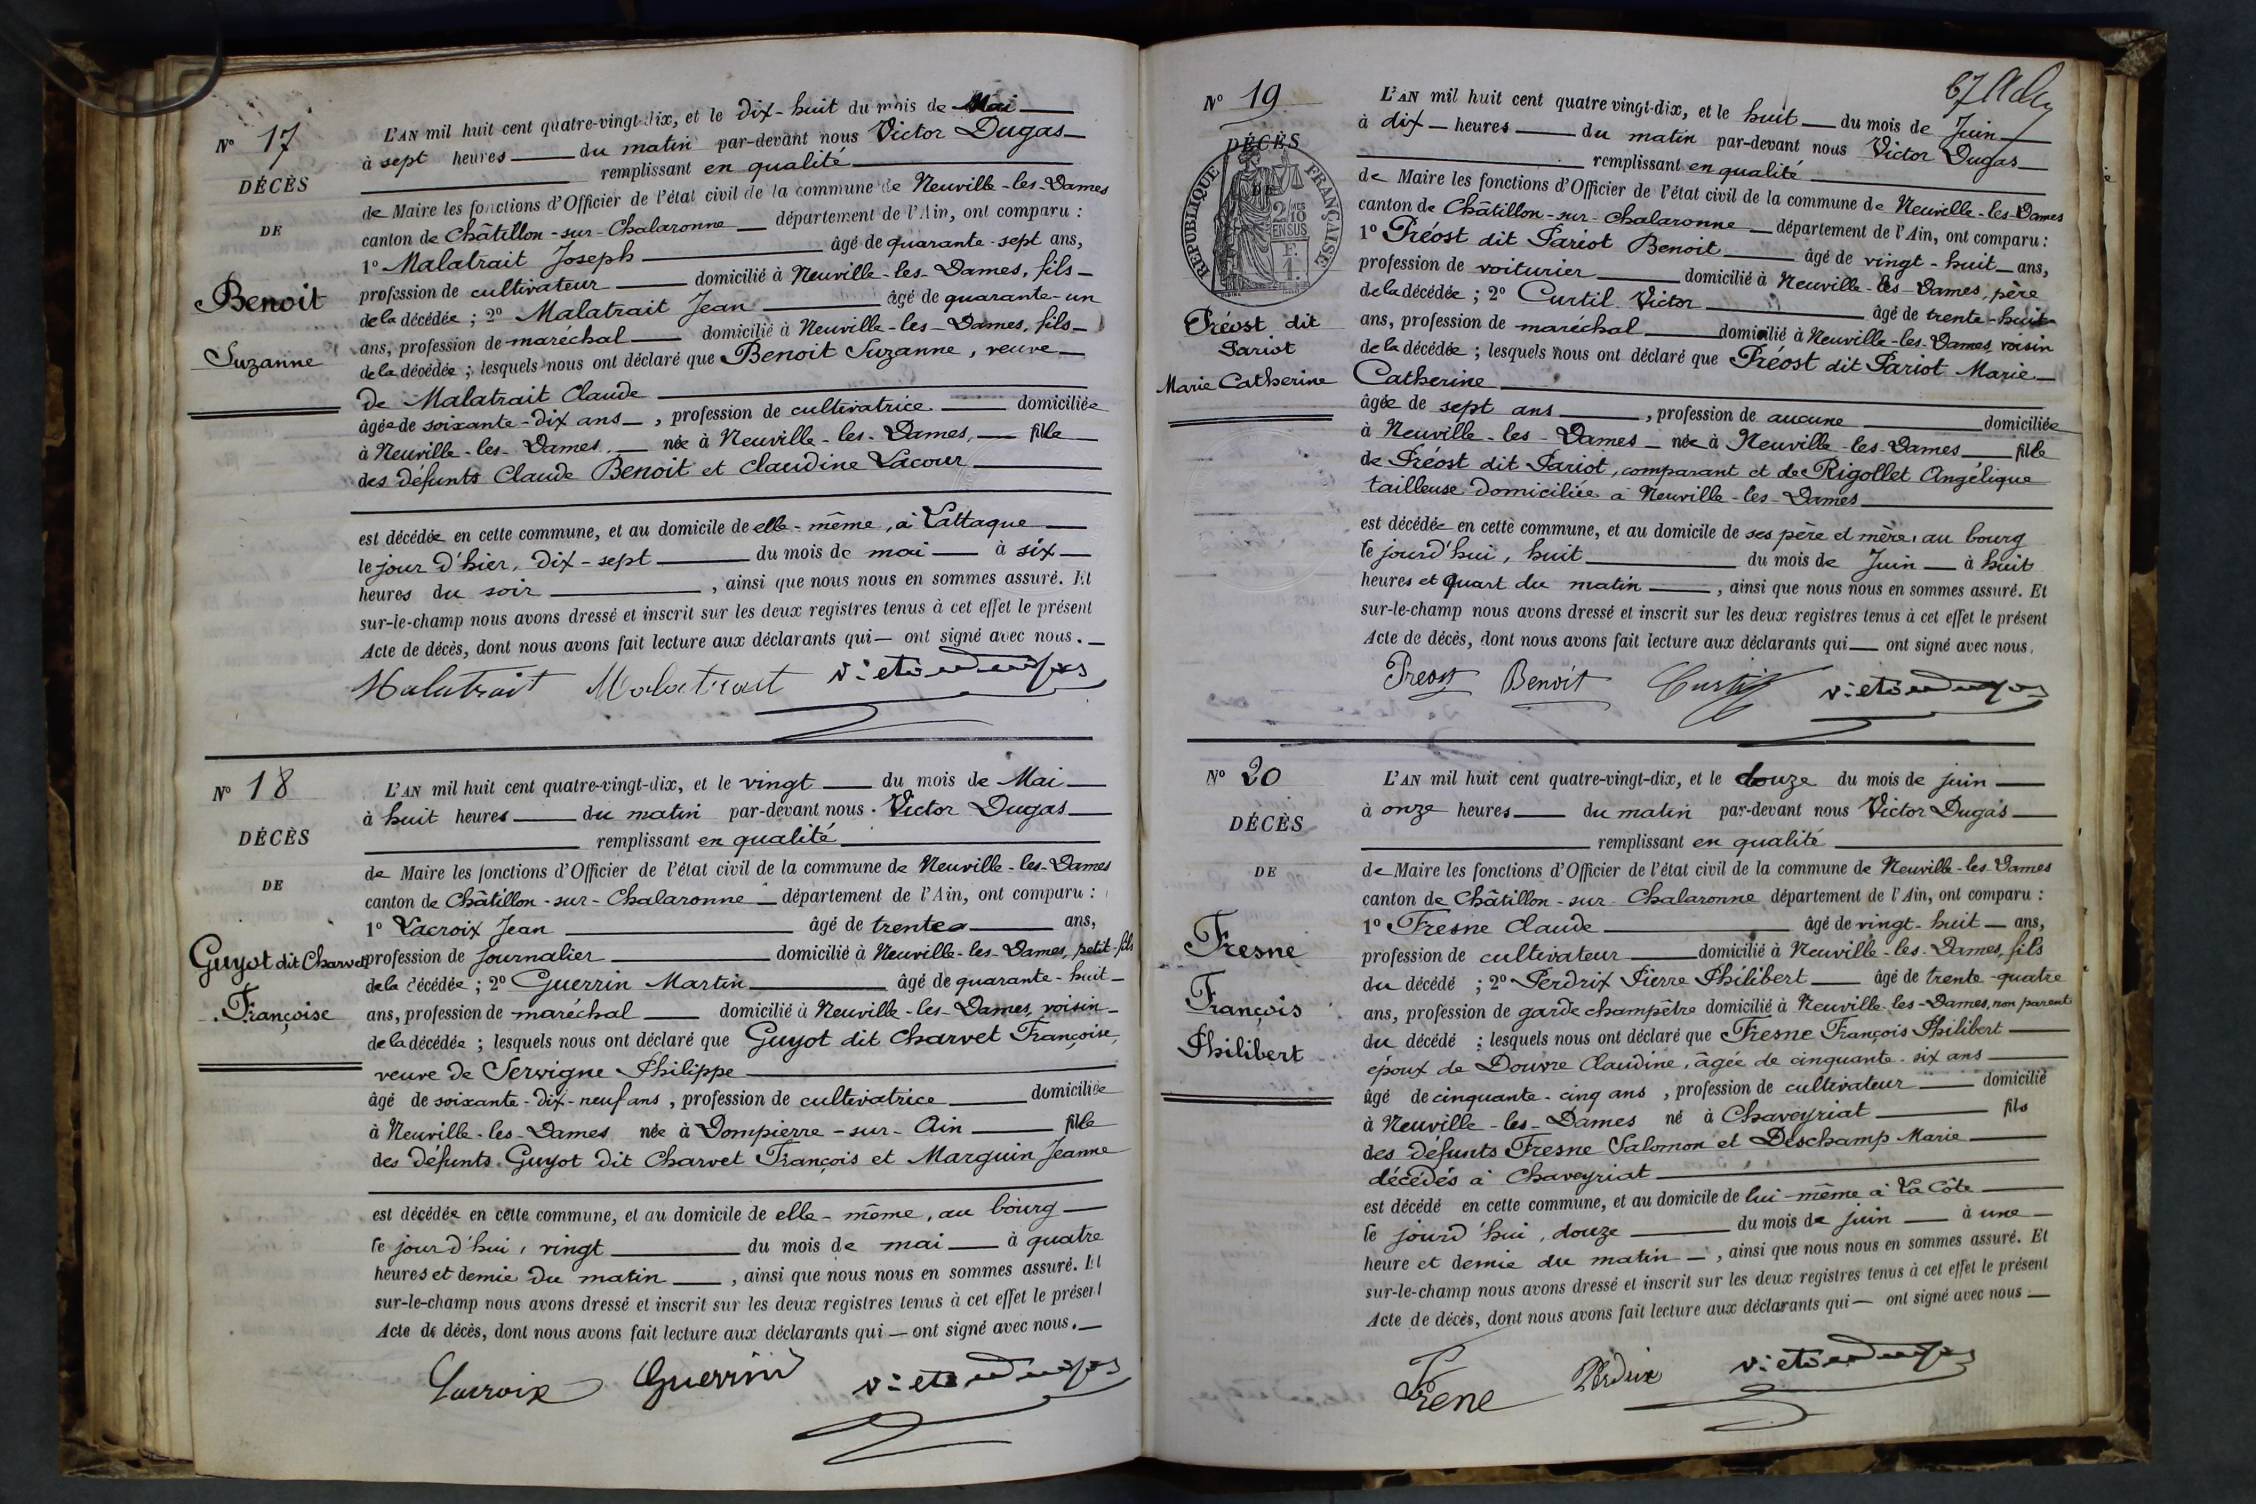 Nº 17
DÉCÈS
DE
Benoit
Suzanne
L'AN mil huit cent quatre-vingt-dix, et le dix-huit du mois de Mai
à sept heures du matin par-devant nous Victor Dugas
remplissant en qualité
de Maire les fonctions d'Officier de l'état civil de la commune de Neuville-les-Dames
canton de Châtillon-sur-Chalaronne département de l'Ain, ont comparu :
1º Malatrait Joseph âgé de quarante-sept ans,
profession de cultivateur domicilié à Neuville-les-Dames, fils
de la décédée ; 2º Malatrait Jean âgé de quarante-un
ans, profession de maréchal domicilié à Neuville-les-Dames, fils
de la décédée ; lesquels nous ont déclaré que Benoit Suzanne, veuve
de Malatrait Claude
âgée de soixante-dix ans, profession de cultivatrice domiciliée
à Neuville-les-Dames, née à Neuville-les-Dames, fille
des défunts Claude Benoit et Claudine Lacour
est décédée en cette commune, et au domicile de elle-même, à Lattaque
le jour d'hier, dix-sept du mois de mai à six
heures du soir, ainsi que nous nous en sommes assuré. Et
sur-le-champ nous avons dressé et inscrit sur les deux registres tenus à cet effet le présent
Acte de décès, dont nous avons fait lecture aux déclarants qui — ont signé avec nous.
Malatrait Malatrait victor dugas
Nº 18
DÉCÈS
DE
Guyot dit Charvet
Françoise
L'AN mil huit cent quatre-vingt-dix, et le vingt du mois de Mai
à huit heures du matin par-devant nous Victor Dugas
remplissant en qualité
de Maire les fonctions d'Officier de l'état civil de la commune de Neuville-les-Dames
canton de Châtillon-sur-Chalaronne département de l'Ain, ont comparu :
1º Lacroix Jean âgé de trente ans,
profession de Journalier domicilié à Neuville-les-Dames, petit-fils
de la décédée ; 2º Guerrin Martin âgé de quarante-huit
ans, profession de maréchal domicilié à Neuville-les-Dames, voisin
de la décédée ; lesquels nous ont déclaré que Guyot dit Charvet Françoise,
veuve de Servigne Philippe
âgé de soixante-dix-neuf ans, profession de cultivatrice domiciliée
à Neuville-les-Dames née à Dompierre-sur-Ain fille
des défunts Guyot dit Charvet François et Marguin Jeanne
est décédée en cette commune, et au domicile de elle-même, au bourg
le jour d'hui, vingt du mois de mai à quatre
heures et demie du matin, ainsi que nous nous en sommes assuré. Et
sur-le-champ nous avons dressé et inscrit sur les deux registres tenus à cet effet le présent
Acte de décès, dont nous avons fait lecture aux déclarants qui — ont signé avec nous.
Lacroix Guerrin victor dugas
67
Nº 19
DÉCÈS
DE
RÉPUBLIQUE FRANÇAISE
2/10 EN SUS
F. 1.
Préost dit
Pariot
Marie Catherine
L'AN mil huit cent quatre-vingt-dix, et le huit du mois de Juin
à dix heures du matin par-devant nous Victor Dugas
remplissant en qualité
de Maire les fonctions d'Officier de l'état civil de la commune de Neuville-les-Dames
canton de Châtillon-sur-Chalaronne département de l'Ain, ont comparu :
1º Préost dit Pariot Benoit âgé de vingt-huit ans,
profession de voiturier domicilié à Neuville-les-Dames, père
de la décédée ; 2º Curtil Victor âgé de trente-huit
ans, profession de maréchal domicilié à Neuville-les-Dames, voisin
de la décédée ; lesquels nous ont déclaré que Préost dit Pariot Marie
Catherine
âgée de sept ans, profession de aucune domiciliée
à Neuville-les-Dames née à Neuville-les-Dames fille
de Préost dit Pariot, comparant et de Rigollet Angélique
tailleuse domiciliée à Neuville-les-Dames
est décédée en cette commune, et au domicile de ses père et mère, au bourg
le jourd'hui, huit du mois de Juin à huit
heures et quart du matin, ainsi que nous nous en sommes assuré. Et
sur-le-champ nous avons dressé et inscrit sur les deux registres tenus à cet effet le présent
Acte de décès, dont nous avons fait lecture aux déclarants qui — ont signé avec nous.
Preost Benoit Curtil victor dugas
Nº 20
DÉCÈS
DE
Fresne
François
Philibert
L'AN mil huit cent quatre-vingt-dix, et le douze du mois de juin
à onze heures du matin par-devant nous Victor Dugas
remplissant en qualité
de Maire les fonctions d'Officier de l'état civil de la commune de Neuville-les-Dames
canton de Châtillon-sur-Chalaronne département de l'Ain, ont comparu :
1º Fresne Claude âgé de vingt-huit ans,
profession de cultivateur domicilié à Neuville-les-Dames, fils
du décédé ; 2º Perdrix Pierre Philibert âgé de trente-quatre
ans, profession de garde champêtre domicilié à Neuville-les-Dames, non parent
du décédé ; lesquels nous ont déclaré que Fresne François Philibert
époux de Douvre Claudine, âgée de cinquante-six ans
âgé de cinquante-cinq ans, profession de cultivateur domicilié
à Neuville-les-Dames né à Chaveyriat fils
des défunts Fresne Salomon et Deschamp Marie
décédés à Chaveyriat
est décédé en cette commune, et au domicile de lui-même à La Côte
le jourd'hui, douze du mois de juin à une
heure et demie du matin, ainsi que nous nous en sommes assuré. Et
sur-le-champ nous avons dressé et inscrit sur les deux registres tenus à cet effet le présent
Acte de décès, dont nous avons fait lecture aux déclarants qui — ont signé avec nous
Frene Perdrix victor dugas